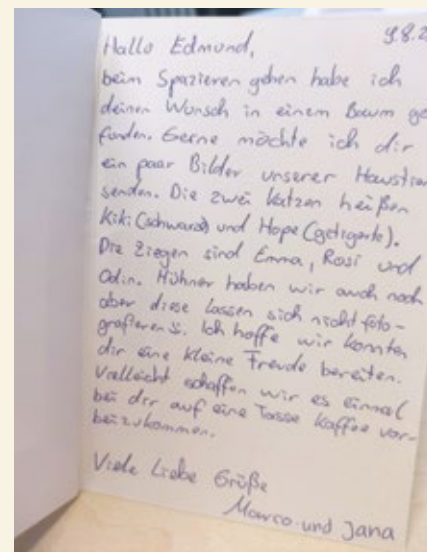 9.8.2
Hallo Edmund,
beim Spazieren gehen habe ich
deinen Wunsch in einem Baum ge
funden. Gerne möchte ich dir
ein paar Bilder unserer Haustier
senden. Die zwei Katzen heißen
Kiki (schwarz) und Hope (getigerte).
Die Ziegen sind Emma, Rosi und
Odin. Hühner haben wir auch noch
aber diese lassen sich nicht foto-
grafieren :. Ich hoffe wir konnten
dir eine kleine Freude bereiten.
Vielleicht schaffen wir es einmal
bei dir auf eine Tasse Kaffee vor-
beizukommen.
Viele Liebe Grüße
Marco und Jana